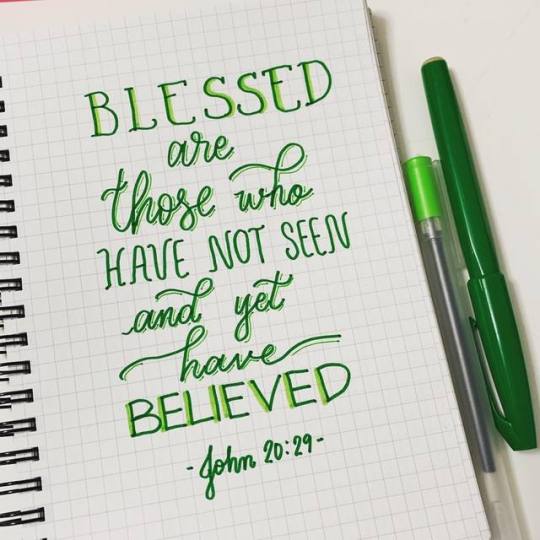 BLESSED
are
those who
HAVE NOT SEEN
and yet
have
BELIEVED
- John 20:29 -